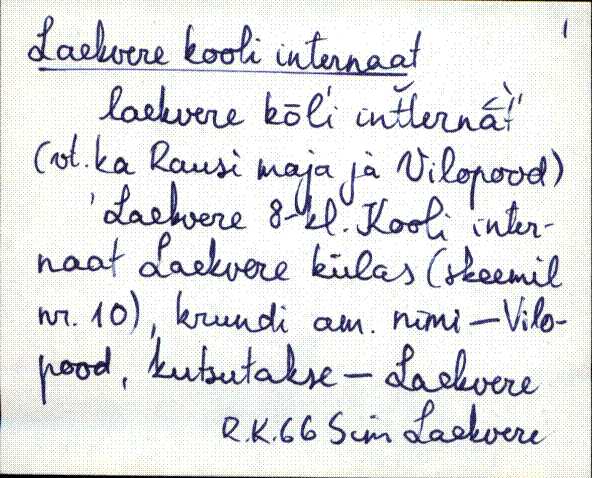 1
Laekvere kooli internaat
laekvere kōĺi intternàt̀'
(vt. ka Rausi maja ja Vilopood)
'Laekvere 8-kl. Kooli inter-
naat Laekvere külas (skeemil
nr. 10), krundi am. nimi — Vilo-
pood, kutsutakse — Laekvere
R.K. 66 Sim Laekvere